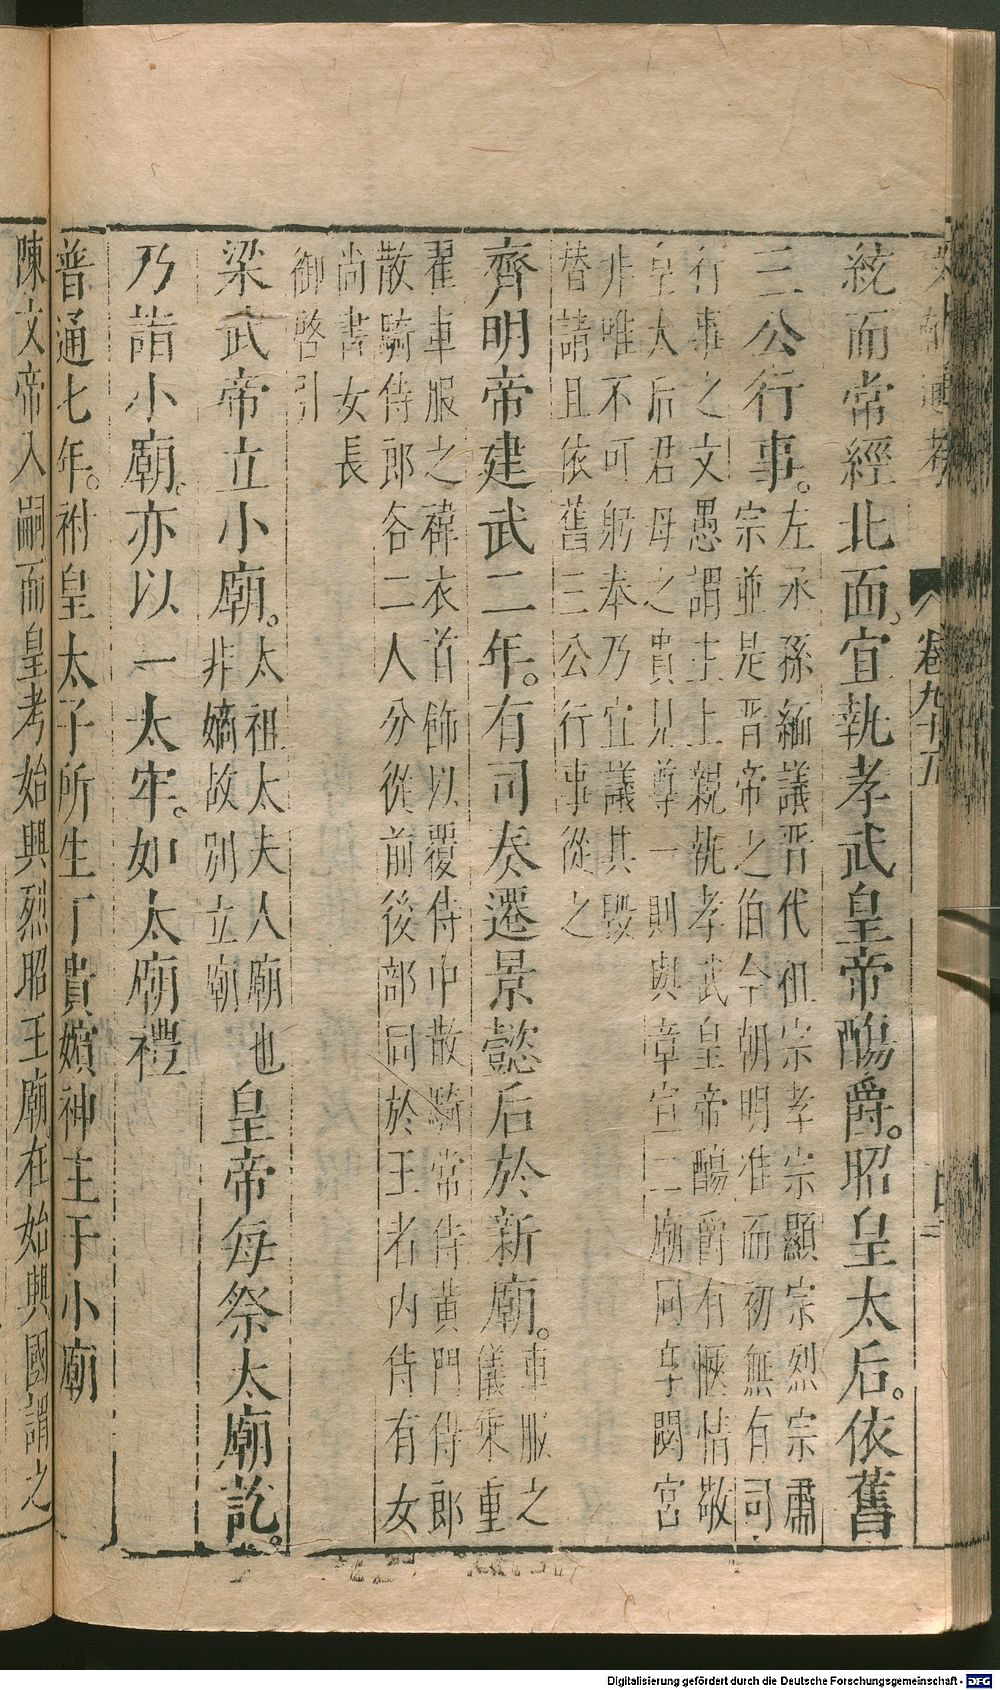 卷九十五
統而常經北面宜執孝武皇帝觴爵。昭皇太后。依舊
三公行事。
左丞孫緬議晉代徂宗孝宗顯宗烈宗肅
宗並是晉帝之伯今朝明准而初無有司
行事之文愚謂主上親執孝武皇帝觴爵有愜情敬
皇太后君母之貴見尊一則與章宣二廟同享閟宮
非唯不可躬奉乃宜議其毀
替請且依舊三公行事從之
齊明帝建武二年。有司奏遷景懿后於新廟。
車服之
儀乘重
翟車服之褘衣首飾以覆侍中散騎常侍黃門侍郎
散騎侍郎各二人分從前後部同於王者內侍有女
尚書女長
御啓引
梁武帝立小廟。
太祖太夫人廟也
非嫡故別立廟
皇帝每祭太廟訖。
乃詣小廟。亦以一太牢。如太廟禮
普通七年。祔皇太子所生丁貴嬪神主于小廟
陳文帝入嗣而皇考始興烈昭王廟在始興國謂之
Digitalisierung gefördert durch die Deutsche Forschungsgemeinschaft - DFG